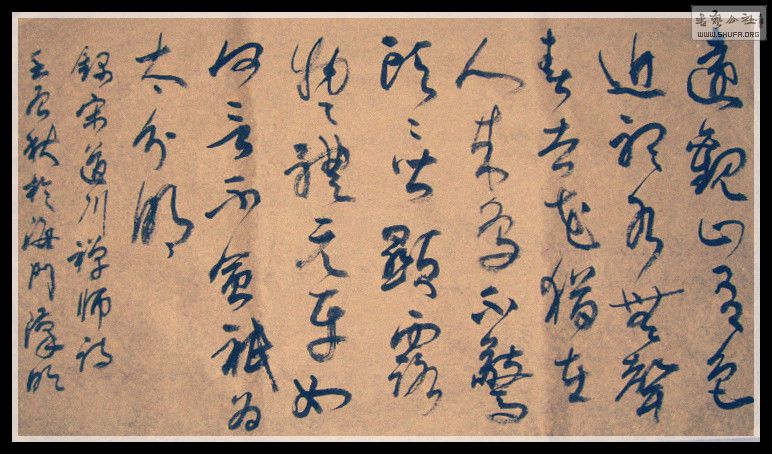 遠觀山有色
近聽水無聲
春去花猶在
人來鳥不驚
頭々皆顯露
物々體元平如
何言不會祇為
太分明
錄宋道川禪師詩
秋於海門
书艺公社
WWW.SHUFA.ORG